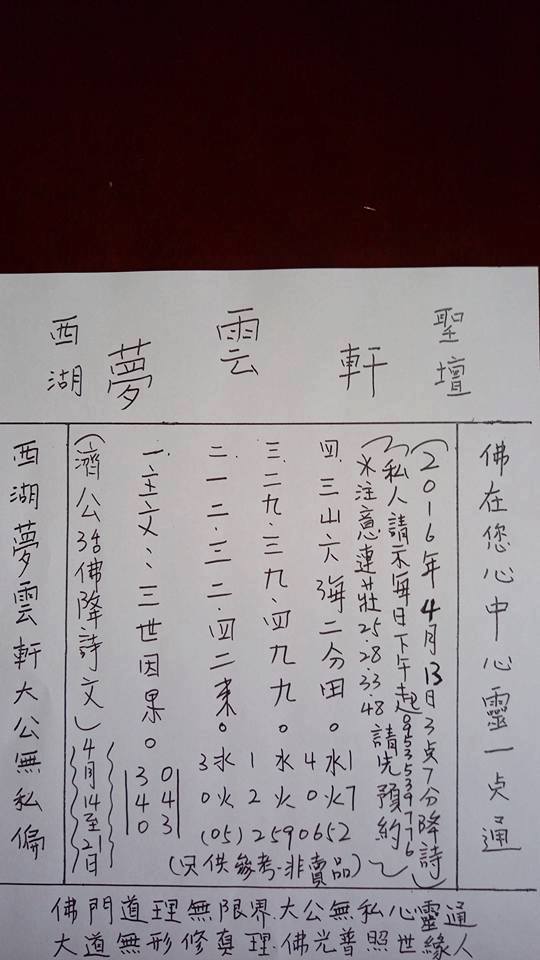 西湖夢雲軒聖壇
西湖夢雲軒大公無私偏
(濟公活佛降詩文)
4月14至21日
一.主文:三世因果。
3 0
4 4
0 3
二.一二.三二.四二來。
三.二九.三九.四九九。
四.三山六海二分田。
3水 1 水 4水1
0火 2 火 0火7
(05)2590652
(只供參考.非賣品)
※注意連莊25.28.33.48
(私人請示每日下午起 請先預約)
(2016年4月13日3点7分降詩)
佛在您心中心靈一点通
佛門道理無限界.大公無私心靈通
大道無形修真理.佛光普照世緣人